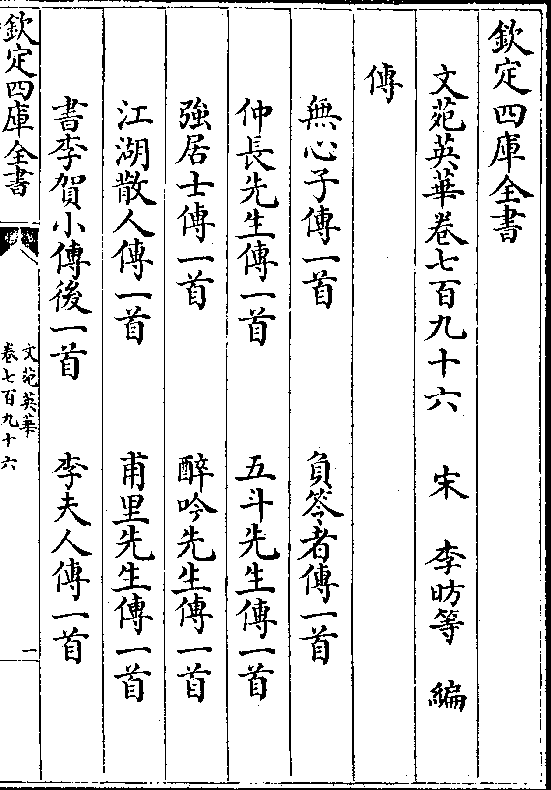 欽定四庫全書
文苑英華卷七百九十六 宋 李昉等 編
傳
無心子傳一首 負苓者傳一首
仲長先生傳一首 五斗先生傳一首
強居士傳一首 醉吟先生傳一首
江湖散人傳一首 甫里先生傳一首
書李賀小傳後一首 李夫人傳一首
欽定四庫全書
文苑英華
卷七百九十六
一